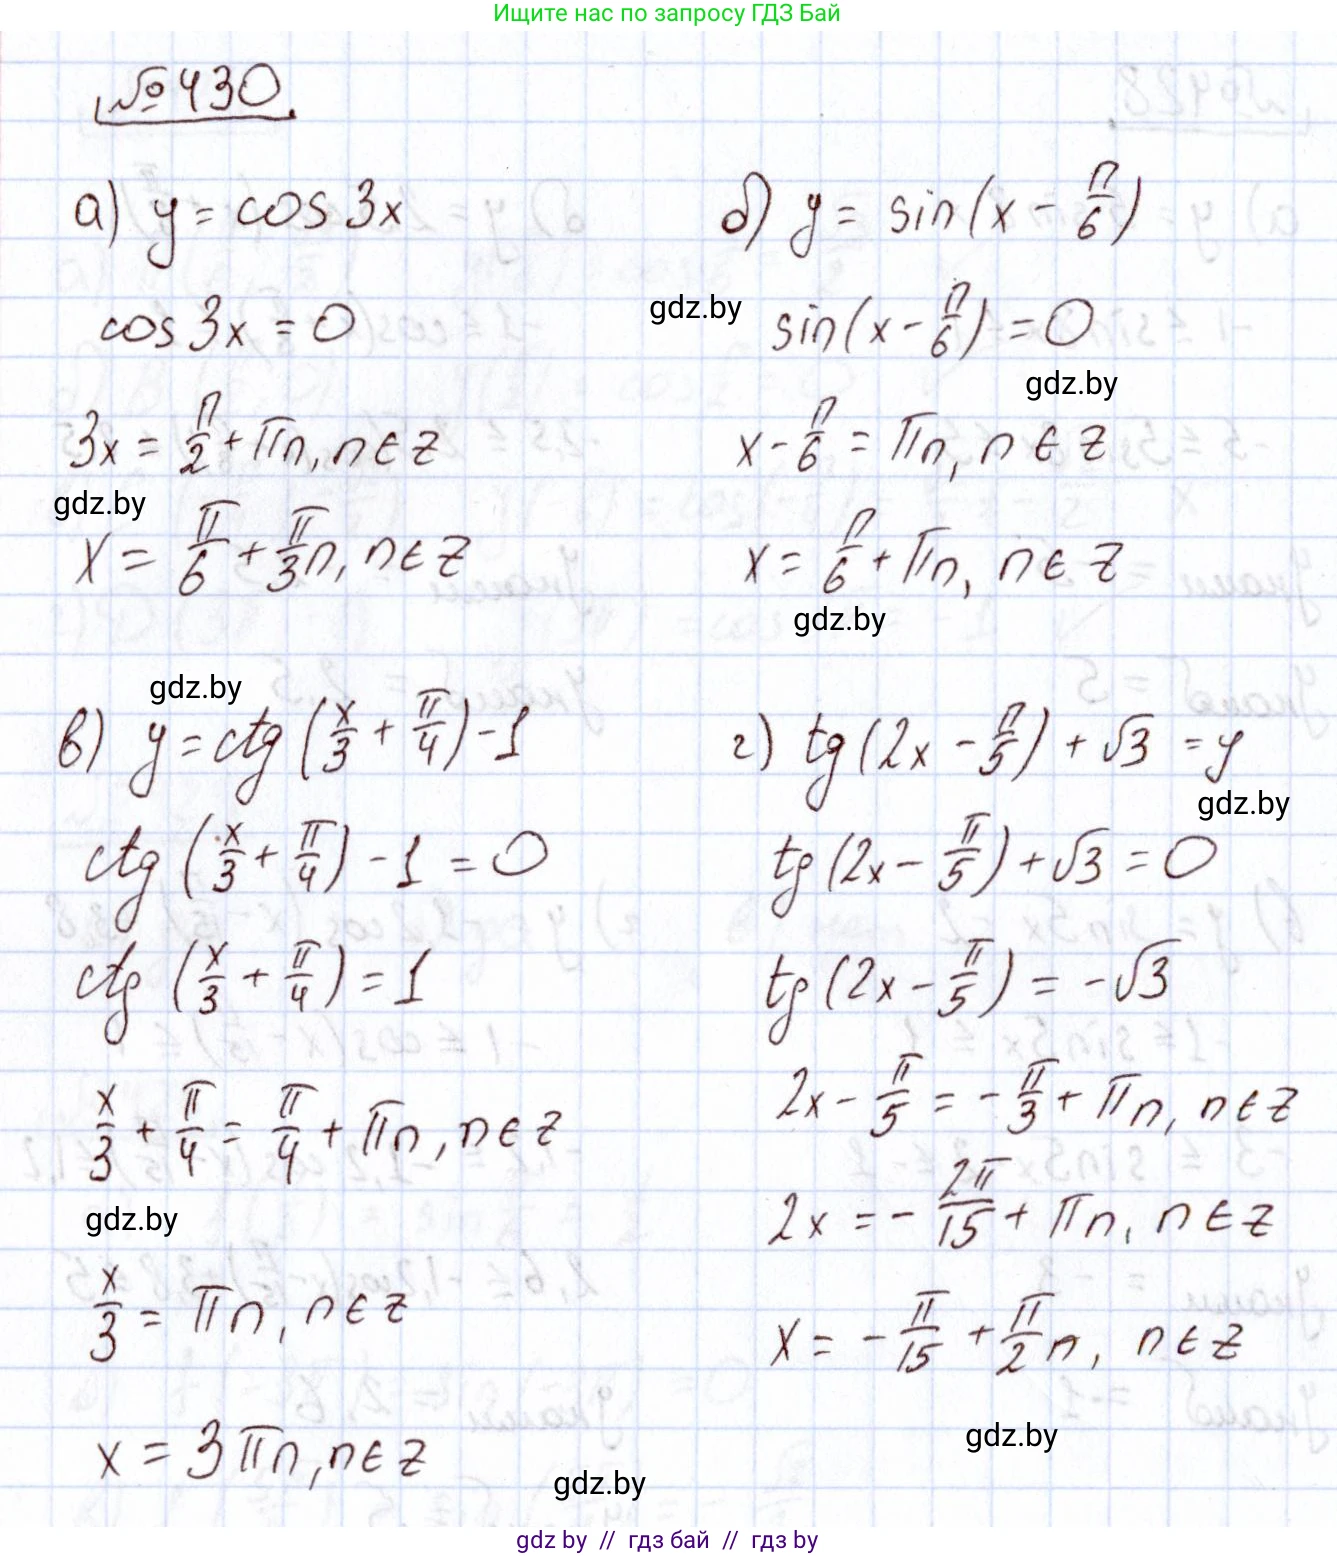 Ищите нас по запросу ГДЗ Бай
№430
а) y = cos 3x
cos 3x = 0
3x = π/2 + πn, n ∈ Z
gdz.by
x = π/6 + π/3 n, n ∈ Z
б) y = sin(x - π/6)
gdz.by
sin(x - π/6) = 0
gdz.by
x - π/6 = πn, n ∈ Z
x = π/6 + πn, n ∈ Z
gdz.by
gdz.by
в) y = ctg(x/3 + π/4) - 1
ctg(x/3 + π/4) - 1 = 0
ctg(x/3 + π/4) = 1
x/3 + π/4 = π/4 + πn, n ∈ Z
gdz.by
x/3 = πn, n ∈ Z
x = 3πn, n ∈ Z
gdz.by
г) tg(2x - π/5) + √3 = y
gdz.by
tg(2x - π/5) + √3 = 0
tg(2x - π/5) = -√3
2x - π/5 = -π/3 + πn, n ∈ Z
2x = -2π/15 + πn, n ∈ Z
x = -π/15 + π/2 n, n ∈ Z
gdz.by
gdz by // гдз бай // gdz by